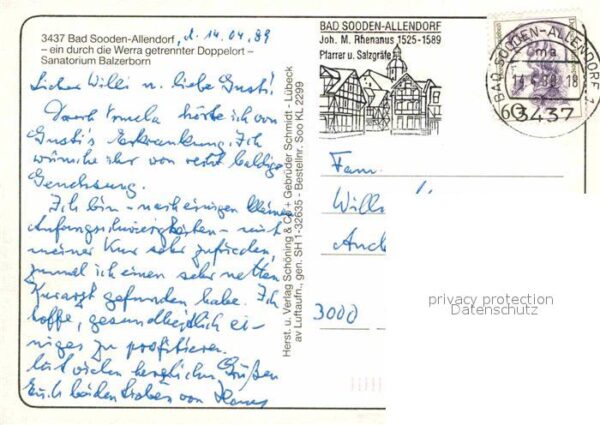 3437 Bad Sooden-Allendorf, d. 14.04.89
– ein durch die Werra getrennter Doppelort –
Sanatorium Balzerborn
Lieber Willi u. liebe Gusti!
Durch hörte ich von
Gusti's Erkrankung. Ich
wünsche ihr von recht baldige
Genesung.
Ich bin – nach einigen kleinen
Anfangsschwierigkeiten – mit
meiner Kur sehr zufrieden,
zumal ich einen sehr netten
Kurarzt gefunden habe. Ich
hoffe, gesundheitlich ei-
niges zu profitieren.
Mit vielen herzlichen Grüßen
Euch beiden Lieben von
Herst. u. Verlag Schöning & Co + Gebrüder Schmidt - Lübeck
av Luftaufn., gen. SH 1-32635 - Bestellnr. Soo KL 2299
BAD SOODEN-ALLENDORF
Joh. M. Rhenanus 1525-1589
Pfarrer u. Salzgräfe
BAD SOODEN-ALLENDORF 1
ma
18
3437
60
Fam.
3000
privacy protection
Datenschutz